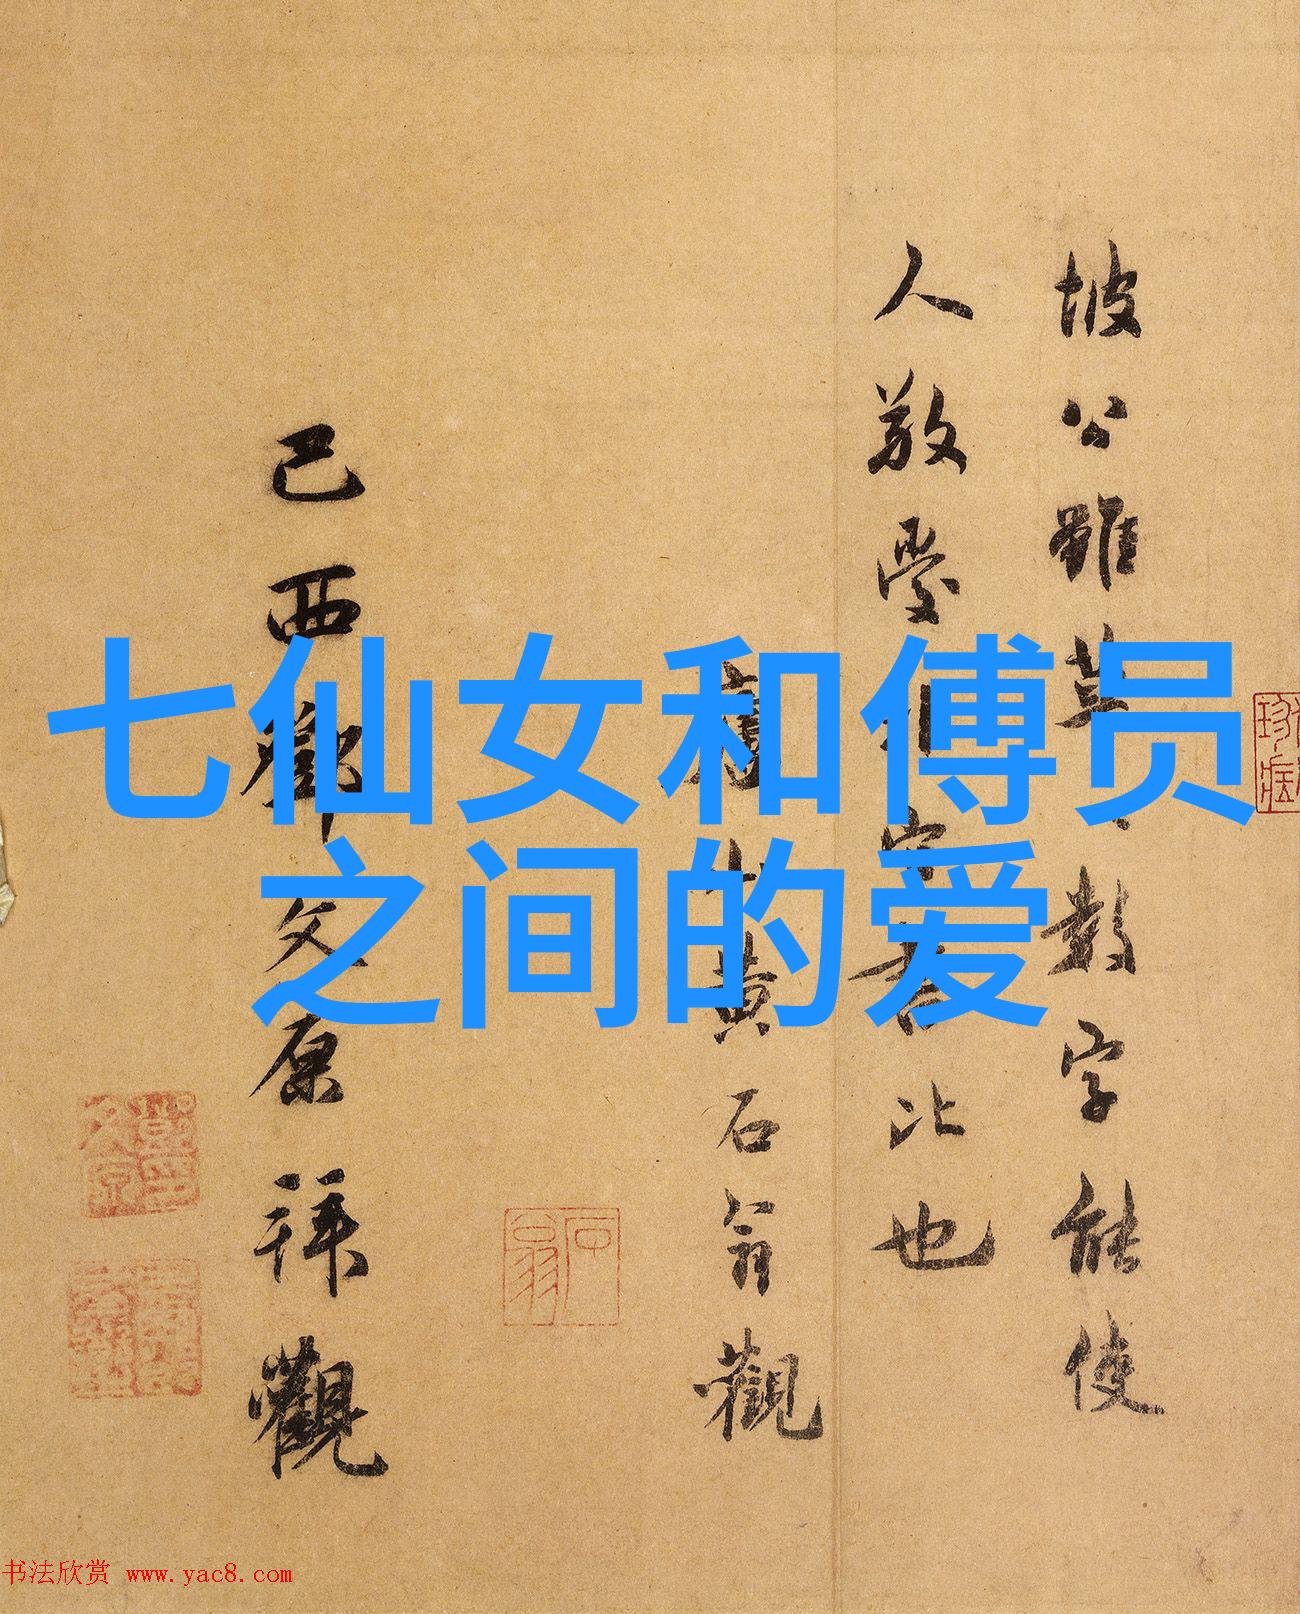 七仙女和傅员
之间的爱
坡公雖草草數字能使
人敬愛
書比也
黄石翁觀
己酉鄧文原拜觀
书法欣赏 www.yac8.com